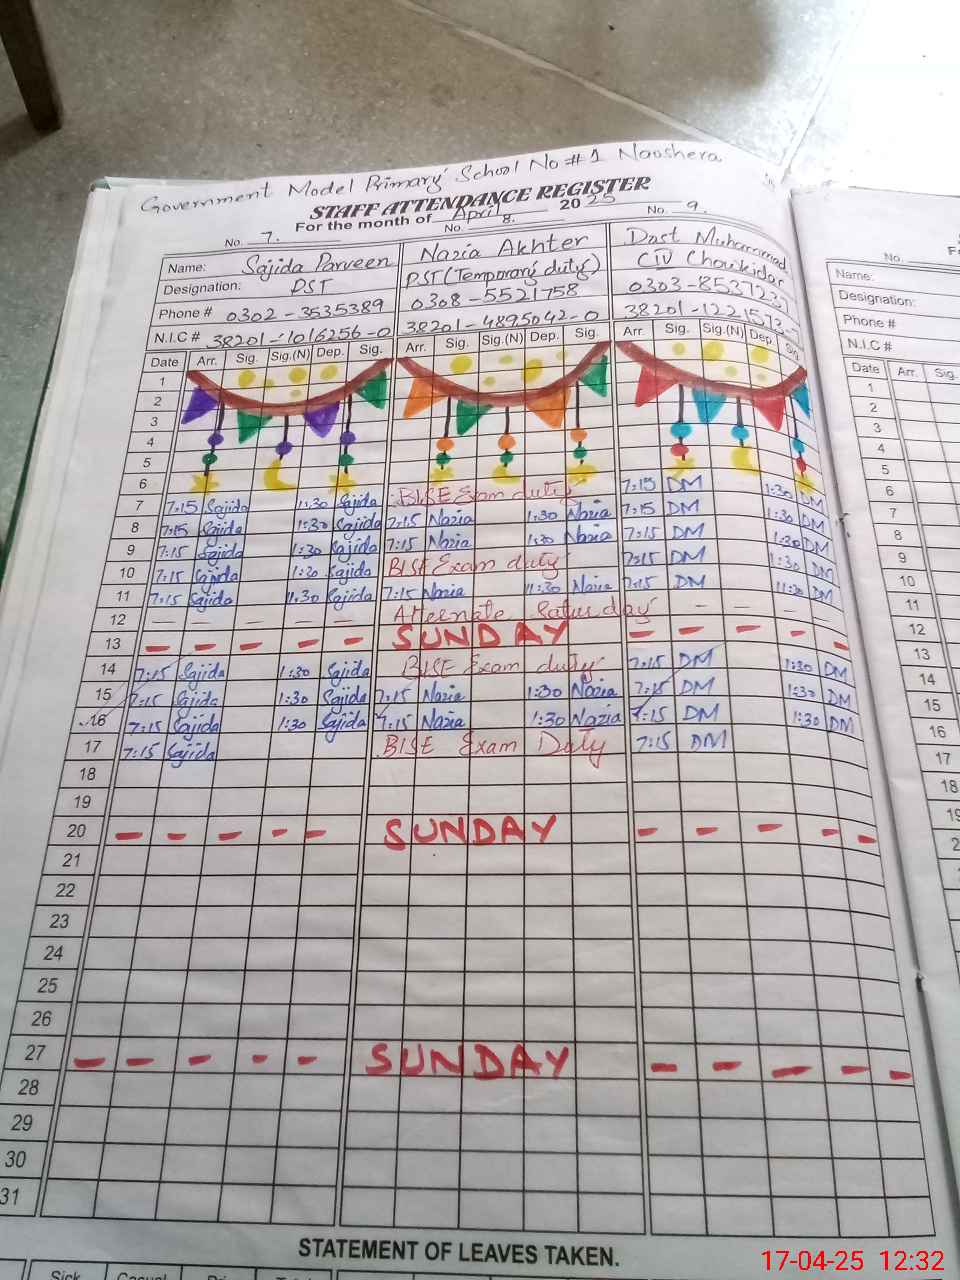 Government Model Primary School No # 1 Naoshera
STAFF ATTENDANCE REGISTER
For the month of April 2025
No. 7. No. 8. No. 9.
Name: Sajida Parveen Nazia Akhter Dost Muhammad
Designation: PST PST (Temporary duty) CIV Chowkidar
Phone # 0302-3535389 0308-5521758
N.I.C # 38201-1016256-0 38201-4895042-0
Date Arr. Sig. Sig.(N) Dep. Sig. Arr. Sig. Sig.(N) Dep. Sig. Arr. Sig. Sig.(N) Dep. Sig.
1
2
3
4
5
6
7 7:15 Sajida 1:30 Sajida BISE Exam duty 7:15 DM 1:30 DM
8 7:15 Sajida 1:30 Sajida 7:15 Nazia 1:30 Nazia 7:15 DM 1:30 DM
9 7:15 Sajida 1:30 Sajida 7:15 Nazia 1:30 Nazia 7:15 DM 1:30 DM
10 7:15 Sajida 1:30 Sajida BISE Exam duty 7:15 DM 1:30 DM
11 7:15 Sajida 11:30 Sajida 7:15 Nazia 11:30 Nazia 7:15 DM 11:30 DM
12 — — — — — Alternate Saturday — — — —
13 — — — — — SUNDAY — — — — —
14 7:15 Sajida 1:30 Sajida BISE Exam duty 7:15 DM 1:30 DM
15 7:15 Sajida 1:30 Sajida 7:15 Nazia 1:30 Nazia 7:15 DM 1:30 DM
16 7:15 Sajida 1:30 Sajida 7:15 Nazia 1:30 Nazia 7:15 DM 1:30 DM
17 7:15 Sajida BISE Exam Duty 7:15 DM
18
19
20 — — — — — SUNDAY — — — — —
21
22
23
24
25
26
27 — — — — — SUNDAY — — — — —
28
29
30
31
STATEMENT OF LEAVES TAKEN.
Sick Casual
No.
Name:
Designation:
Phone #
N.I.C #
Date Arr. Sig.
1
2
3
4
5
6
7
8
9
10
11
12
13
14
15
16
17
18
17-04-25 12:32